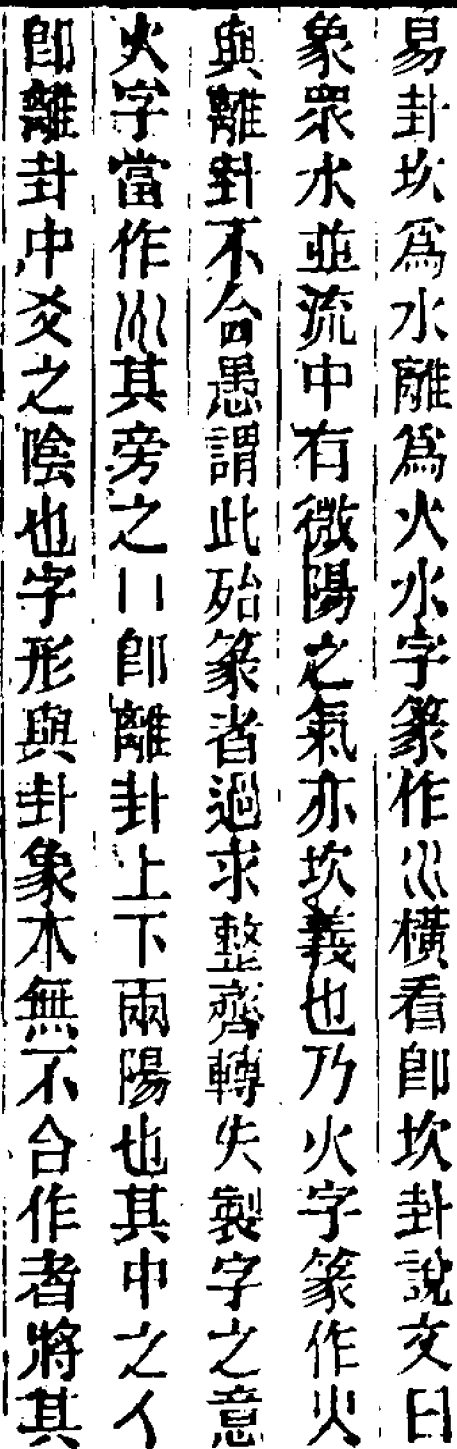 易卦坎爲水離爲火水字篆作𝍢橫看卽坎卦說文曰
象眾水並流中有微陽之氣亦坎義也乃火字篆作火
與離卦不合愚謂此殆篆者過求整齊轉失製字之意
火字當作其旁之八卽離卦上下兩陽也其中之人
卽離卦中爻之陰也字形與卦象本無不合作者將其